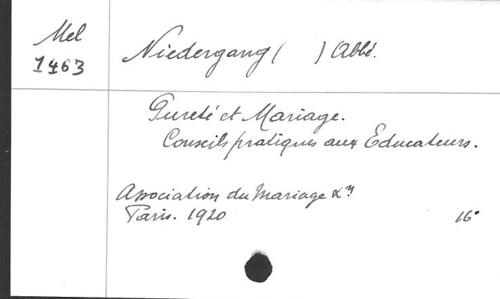 Mel
1463
Niedergang ( ) Abbé.
Pureté et Mariage.
Conseils pratiques aux Educateurs.
Association du Mariage
Paris. 1920 16°